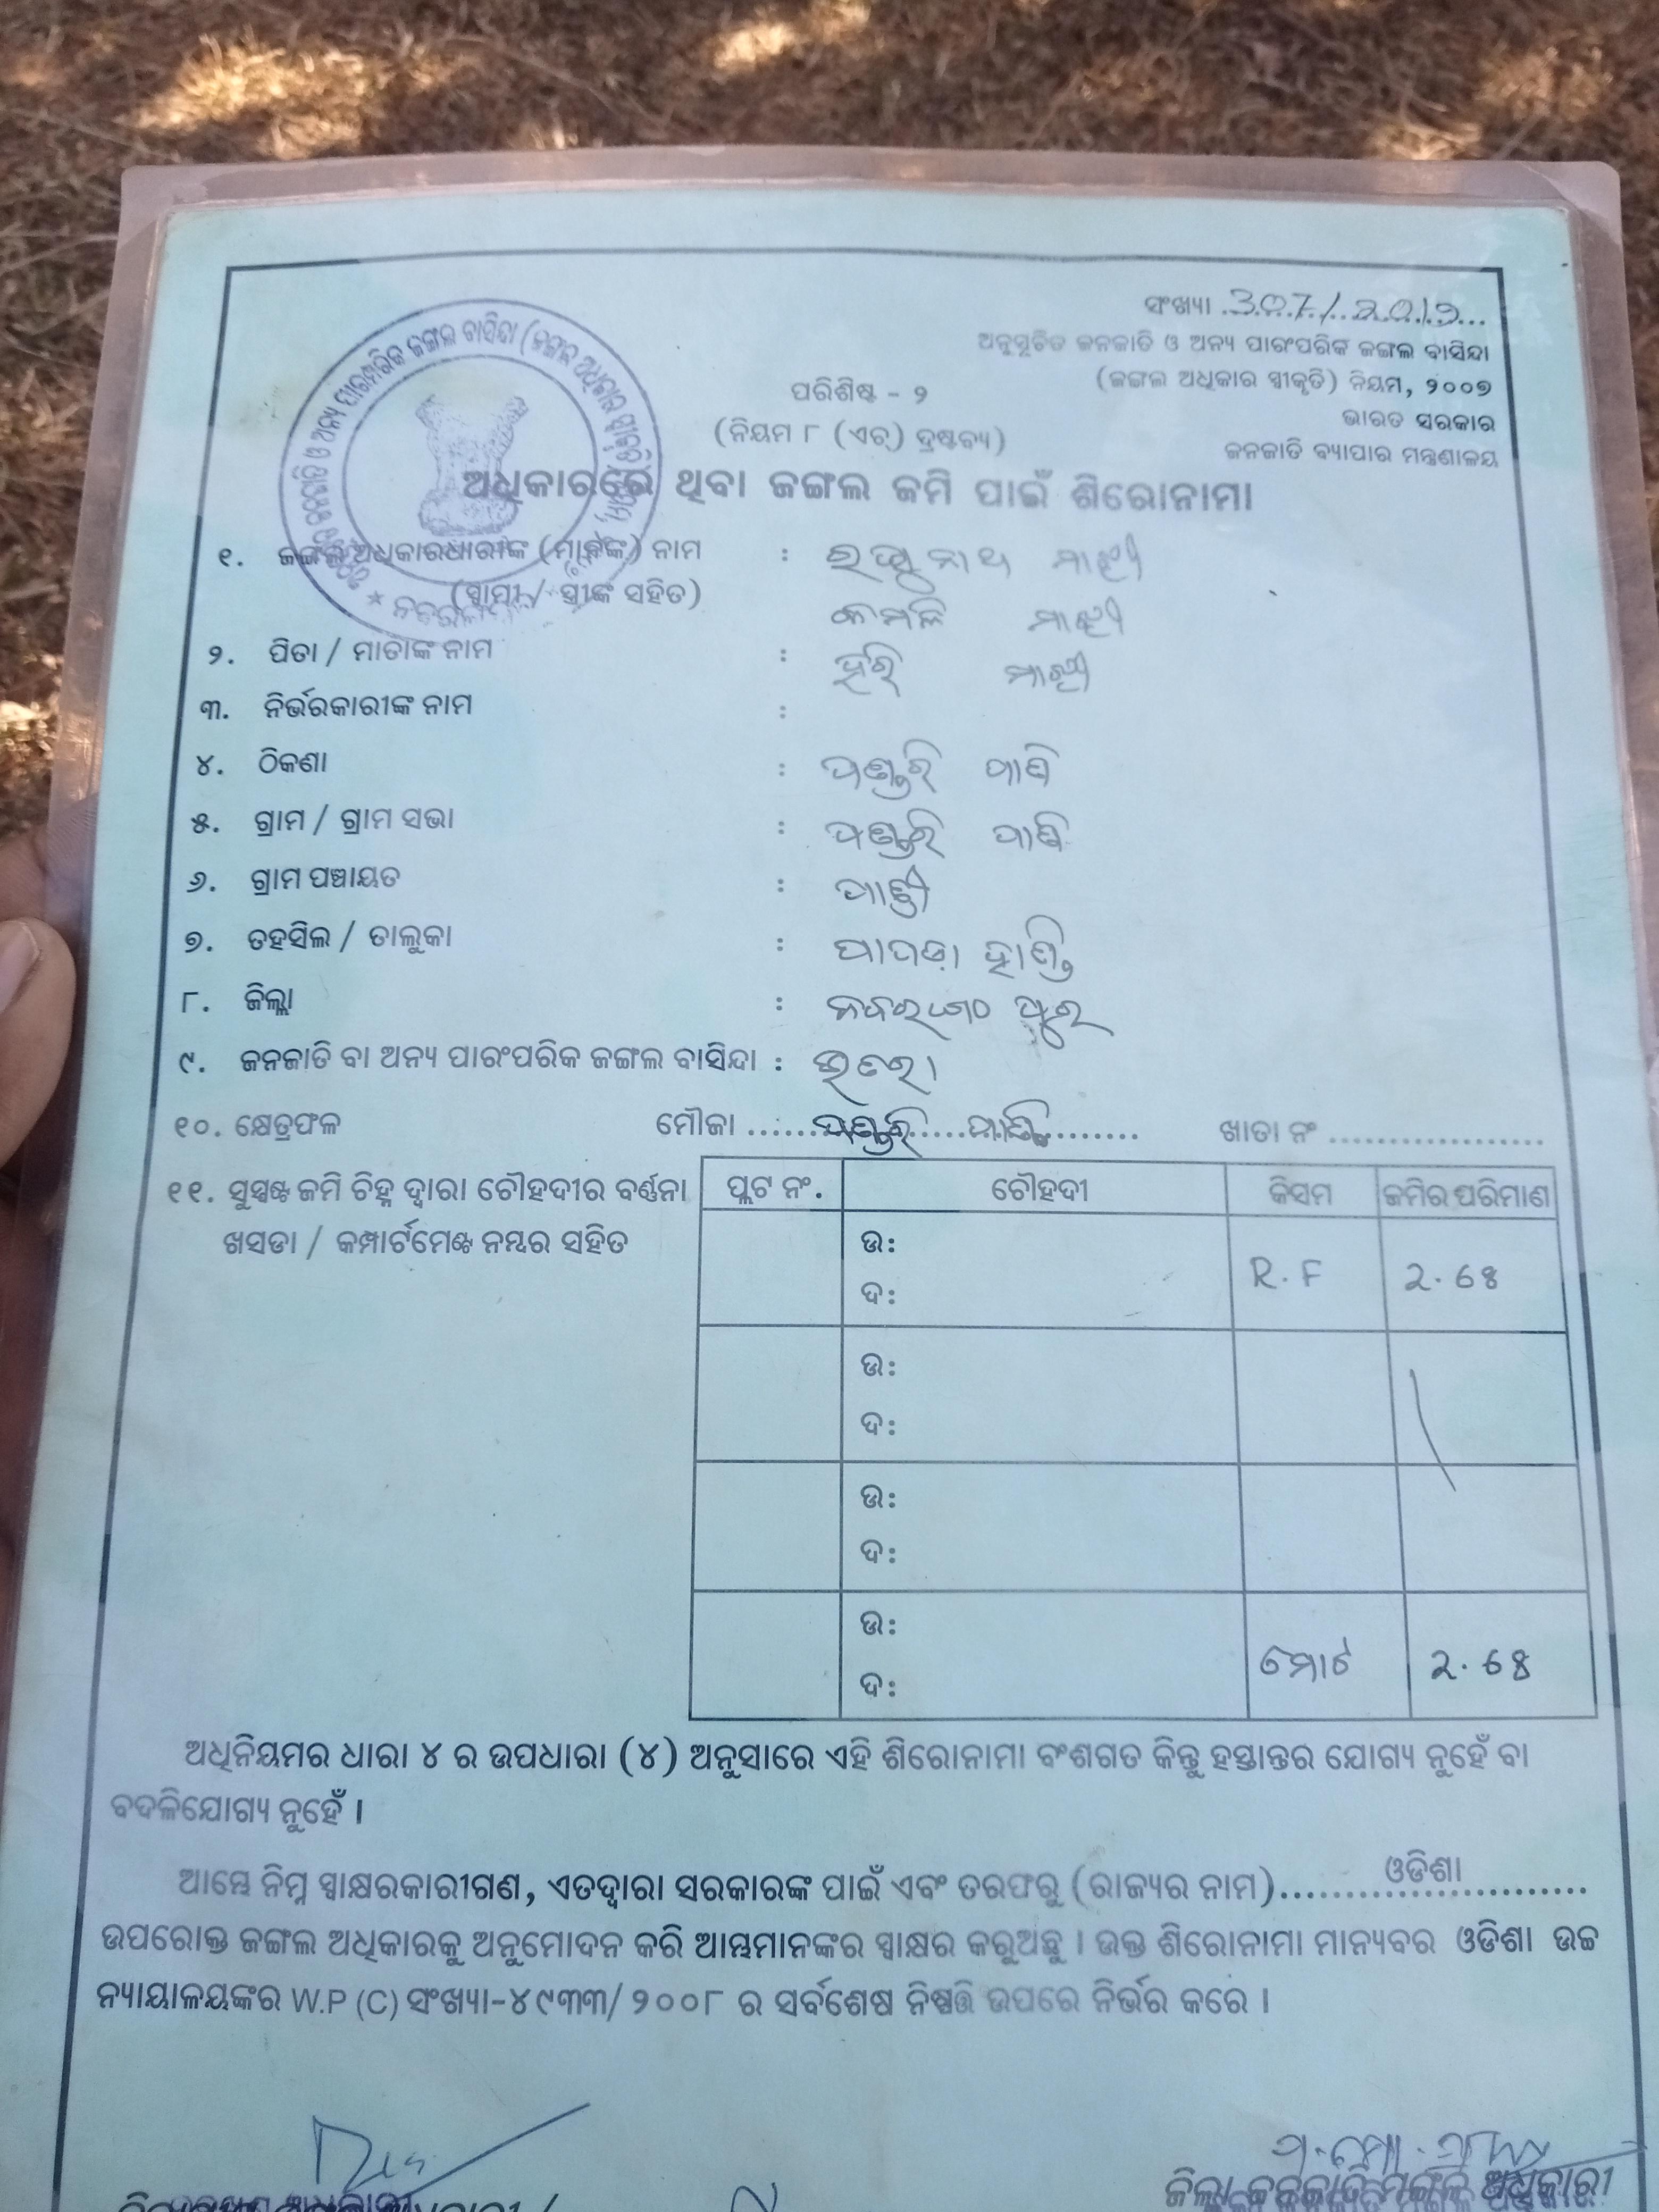 ସଂଖ୍ୟା
ଅନୁସୂଚିତ ଜନଜାତି ଓ ଅନ୍ୟ ପାରଂପରିକ ଜଙ୍ଗଲ ବାସିନ୍ଦା
(ଜଙ୍ଗଲ ଅଧିକାର ସ୍ୱୀକୃତି) ନିୟମ, ୨୦୦୭
ଭାରତ ସରକାର
ଜନଜାତି ବ୍ୟାପାର ମନ୍ତ୍ରଣାଳୟ
ପରିଶିଷ୍ଟ - ୨
(ନିୟମ ୮ (ଏଚ୍) ଦ୍ରଷ୍ଟବ୍ୟ)
ଅଧିକାରରେ ଥିବା ଜଙ୍ଗଲ ଜମି ପାଇଁ ଶିରୋନାମା
୧. ଜଙ୍ଗଲ ଅଧିକାରଧାରୀଙ୍କ ନାମ : ରଘୁନାଥ ମାଝୀ
(ସ୍ୱାମୀ / ସ୍ତ୍ରୀଙ୍କ ସହିତ) କମଳି ମାଝୀ
୨. ପିତା / ମାତାଙ୍କ ନାମ : ହରି ମାଝୀ
୩. ନିର୍ଭରକାରୀଙ୍କ ନାମ :
୪. ଠିକଣା :
୫. ଗ୍ରାମ / ଗ୍ରାମ ସଭା :
୬. ଗ୍ରାମ ପଞ୍ଚାୟତ :
୭. ତହସିଲ / ତାଲୁକା : ପାପଡ଼ାହାଣ୍ଡି
୮. ଜିଲ୍ଲା : ନବରଙ୍ଗପୁର
୯. ଜନଜାତି ବା ଅନ୍ୟ ପାରଂପରିକ ଜଙ୍ଗଲ ବାସିନ୍ଦା :
୧୦. କ୍ଷେତ୍ରଫଳ ମୌଜା .................... ଖାତା ନଂ ..................
୧୧. ସୁସ୍ପଷ୍ଟ ଜମି ଚିହ୍ନ ଦ୍ୱାରା ଚୌହଦୀର ବର୍ଣ୍ଣନା
ଖସଡା / କମ୍ପାର୍ଟମେଣ୍ଟ ନମ୍ବର ସହିତ
ପ୍ଲଟ ନଂ. ଚୌହଦୀ କିସମ ଜମିର ପରିମାଣ
ଉ:
ଦ: R.F
ଉ:
ଦ:
ଉ:
ଦ:
ଉ:
ଦ: ମୋଟ
ଅଧିନିୟମର ଧାରା ୪ ର ଉପଧାରା (୪) ଅନୁସାରେ ଏହି ଶିରୋନାମା ବଂଶଗତ କିନ୍ତୁ ହସ୍ତାନ୍ତର ଯୋଗ୍ୟ ନୁହେଁ ବା
ବଦଳିଯୋଗ୍ୟ ନୁହେଁ ।
ଆମ୍ଭେ ନିମ୍ନ ସ୍ୱାକ୍ଷରକାରୀଗଣ, ଏତଦ୍ୱାରା ସରକାରଙ୍କ ପାଇଁ ଏବଂ ତରଫରୁ (ରାଜ୍ୟର ନାମ)......ଓଡିଶା..........
ଉପରୋକ୍ତ ଜଙ୍ଗଲ ଅଧିକାରକୁ ଅନୁମୋଦନ କରି ଆମ୍ଭମାନଙ୍କର ସ୍ୱାକ୍ଷର କରୁଅଛୁ । ଉକ୍ତ ଶିରୋନାମା ମାନ୍ୟବର ଓଡିଶା ଉଚ୍ଚ
ନ୍ୟାୟାଳୟଙ୍କର W.P (C) ସଂଖ୍ୟା-୪୯୩୩/ ୨୦୦୮ ର ସର୍ବଶେଷ ନିଷ୍ପତ୍ତି ଉପରେ ନିର୍ଭର କରେ ।
ଜିଲ୍ଲା ଜନଜାତି ମଙ୍ଗଳ ଅଧିକାରୀ